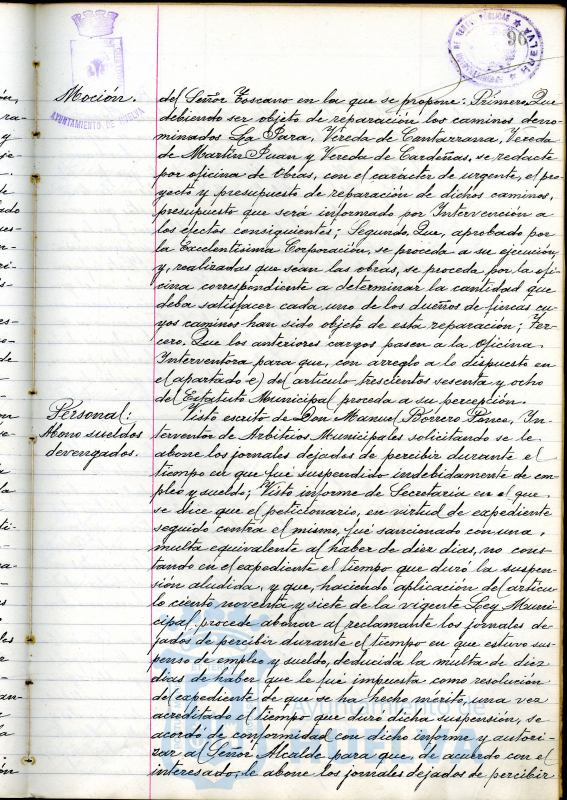 96
AYUNTAMIENTO DE HUELVA
Moción.
del Señor Toscano en la que se propone: Primero. Que
debiendo ser objeto de reparación los caminos deno-
minados La Para, Vereda de Cantarrana, Vereda
de Martin Juan y Vereda de Cardeñas, se redacte
por oficina de Obras, con el carácter de urgente, el pro-
yecto y presupuesto de reparación de dichos caminos,
presupuesto que será informado por Intervención a
los efectos consiguientes; Segundo. Que, aprobado por
la Excelentisima Corporación, se proceda a su ejecución,
y, realizadas que sean las obras, se proceda por la ofi-
cina correspondiente a determinar la cantidad que
deba satisfacer cada uno de los dueños de fincas cu-
yos caminos han sido objeto de esta reparación; Ter-
cero. Que los anteriores cargos pasen a la Oficina
Interventora para que, con arreglo a lo dispuesto en
el apartado e) del articulo trescientos sesenta y ocho
del Estatuto Municipal proceda a su percepción.
Personal:
Abono sueldos
devengados.
Visto escrito de Don Manuel Borrero Ponce, In-
terventor de Arbitrios Municipales solicitando se le
abone los jornales dejados de percibir durante el
tiempo en que fué suspendido indebidamente de em-
pleo y sueldo; Visto informe de Secretaria en el que
se dice que el peticionario, en virtud de expediente
seguido contra el mismo, fué sancionado con una
multa equivalente al haber de diez dias, no cons-
tando en el expediente el tiempo que duró la suspen-
sión aludida, y que, haciendo aplicación del articu-
lo ciento noventa y siete de la vigente Ley Muni-
cipal, procede abonar al reclamante los jornales de-
jados de percibir durante el tiempo en que estuvo sus-
penso de empleo y sueldo, deducida la multa de diez
dias de haber que le fué impuesta como resolución
del expediente de que se ha hecho mérito, una vez
acreditado el tiempo que duró dicha suspensión, se
acordó de conformidad con dicho informe y autori-
zar al Señor Alcalde para que, de acuerdo con el
interesado, le abone los jornales dejados de percibir
Ayuntamiento de
HUELVA